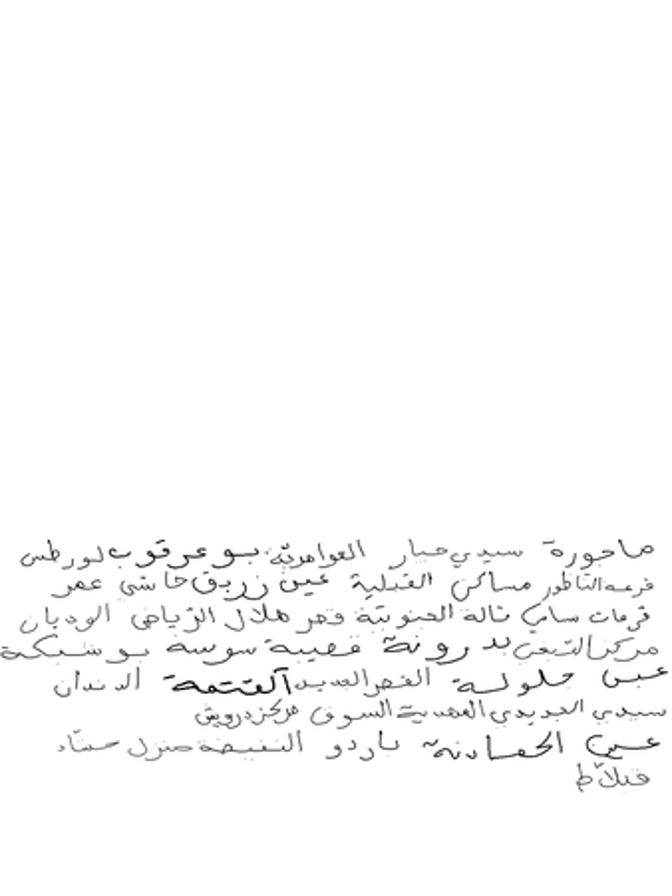 ماجورة سيدي جبار العوامرية بوعرقوب لورطس
فرعة الناظور مساكن القبلية عين زريق حاشي عمر
قرمات سامي تالة الجنوبية قصر هلال الرياض الوديان
مركز الشعبي بدرونة قصيبة سوسة بوشبكة
عين جلولة القصر الجديد القتمة الدندان
سيدي الجديدي المهدية السوق مركز درويش
عين الحصادنة باردو النفيضة منزل حشاد
قبلاط